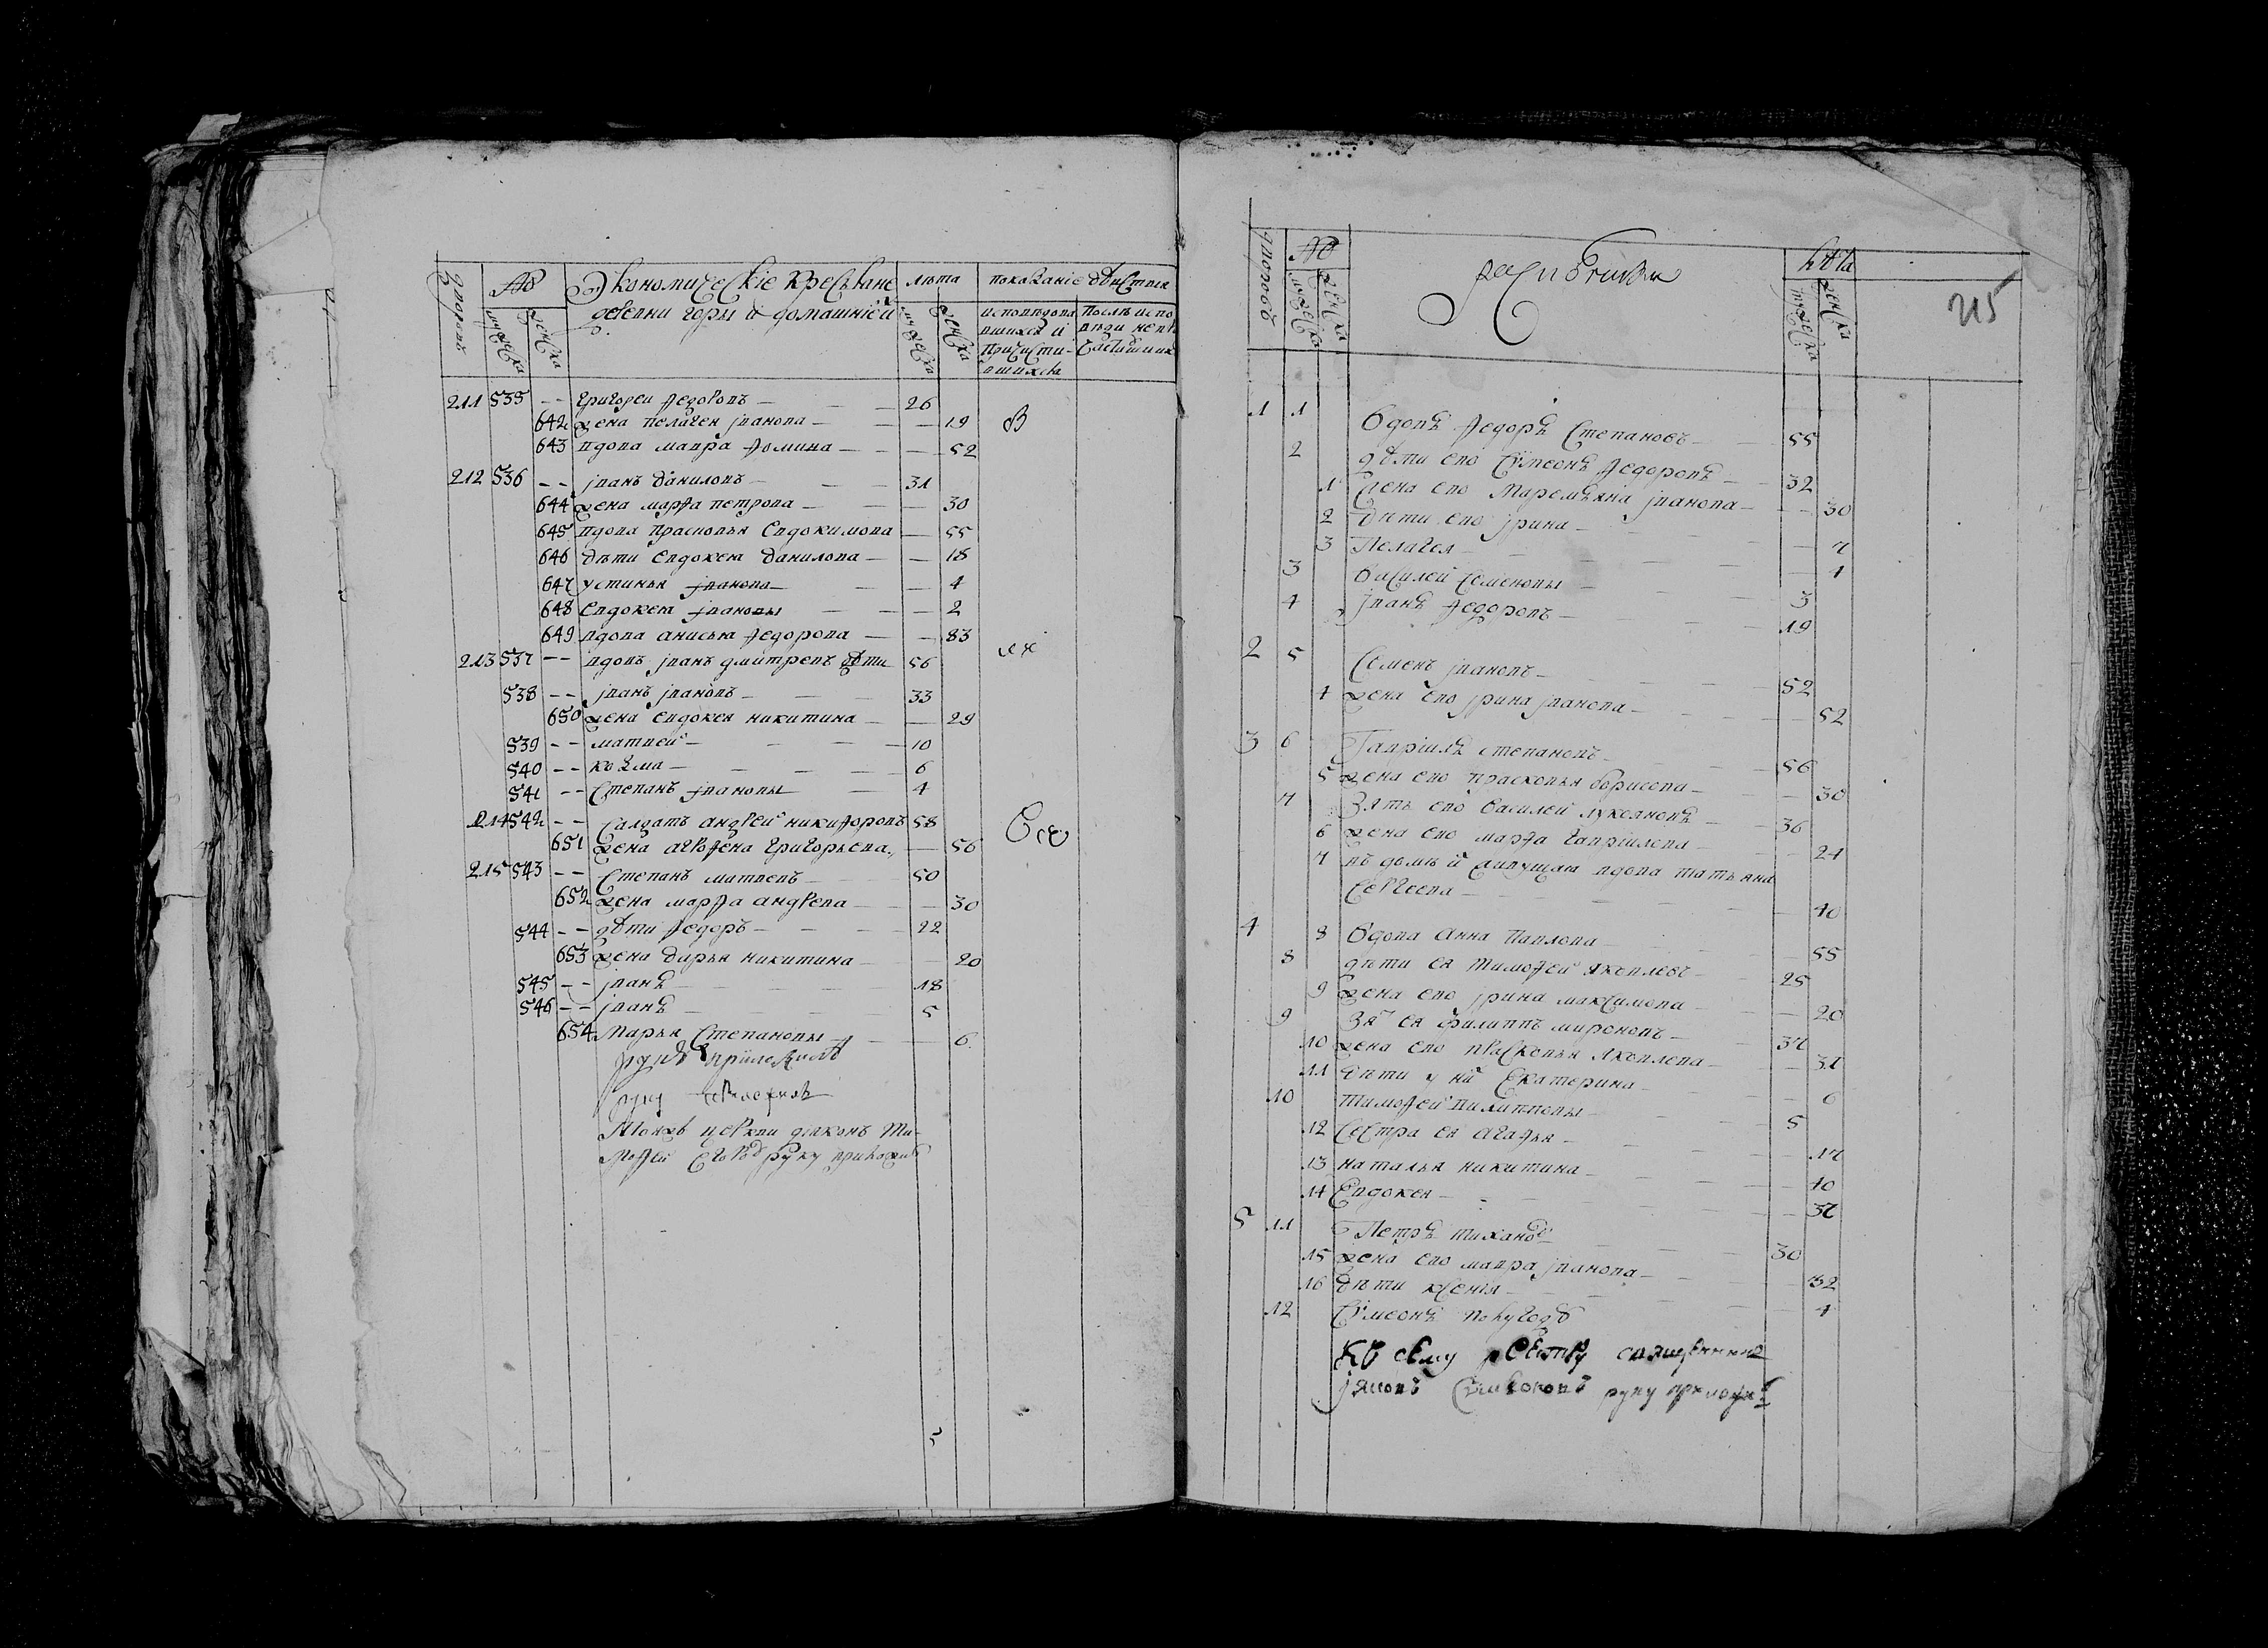 № Экономическіе крестьяне лѣта показаніе дѣйствия
деревни горы и домашнией
дворовъ мужеска женска мужеска женска
исповѣдовавшихся и причастившихся
После исповѣди не причастившихся
211 535 -- григореи федоровъ 26
642 жена пелагея іванова 19
643 вдова мавра фомина 52
212 536 -- іванъ даниловъ 31
644 жена марфа петрова 30
645 вдова прасковья евдокимова 55
646 дѣти евдокея данилова 18
647 устинья іванова 4
648 евдокея івановы 2
649 вдова анисья федорова 83
213 537 -- вдовъ іванъ дмитревъ дѣти 56
538 -- іванъ івановъ 33
650 жена евдокея никитина 29
539 -- матвей 10
540 -- козма 6
541 -- степанъ івановы 4
214 542 -- салдатъ андрей никифоровъ 58
651 жена агрофена григорьева 56
215 543 -- степанъ матвеевъ 50
652 жена марфа андрева 30
544 -- дѣти федоръ 22
653 жена дарья никитина 20
545 -- іванъ 18
546 -- іванъ 5
654 марья степановы 6
руку приложилъ
руку
церкви діяконъ Тимофей руку приложилъ
5
215
№ лѣта
дворовъ мужеска женска мужеска женска
1 1 Вдовъ федоръ степановъ 55
2 дѣти ево сѵмеонъ федоровъ 32
1 жена ево маремьяна іванова 30
2 дѣти ево ірина 7
3 Пелагея 4
3 Василей семеновы 3
4 іванъ федоровъ 19
2 5 Семенъ івановъ 52
4 жена ево ірина іванова 52
3 6 Гавріилъ степановъ 56
5 жена ево прасковья борисова 30
7 Зять ево василей лукояновъ 36
6 жена ево марфа гавріилева 24
7 въ доме вдова татьяна
сергеева 40
4 8 Вдова анна павлова 55
8 дѣти ея тимофей яковлевъ 25
9 жена ево ірина максимова 20
9 Зя ея филиппъ мироновъ 37
10 жена ево прасковья яковлева 31
11 дѣти у ни екатерина 6
10 тимофей филипповы 5
12 сестра ея агафья 17
13 наталья никитина 40
14 Евдокея 37
5 11 Петръ тиханов 30
15 жена ево мавра іванова 32
16 дѣти ксенія 4
12 Сѵмеонъ полугод
Къ сему реэстру священникъ
іяковъ сѵмеоновъ руку приложилъ